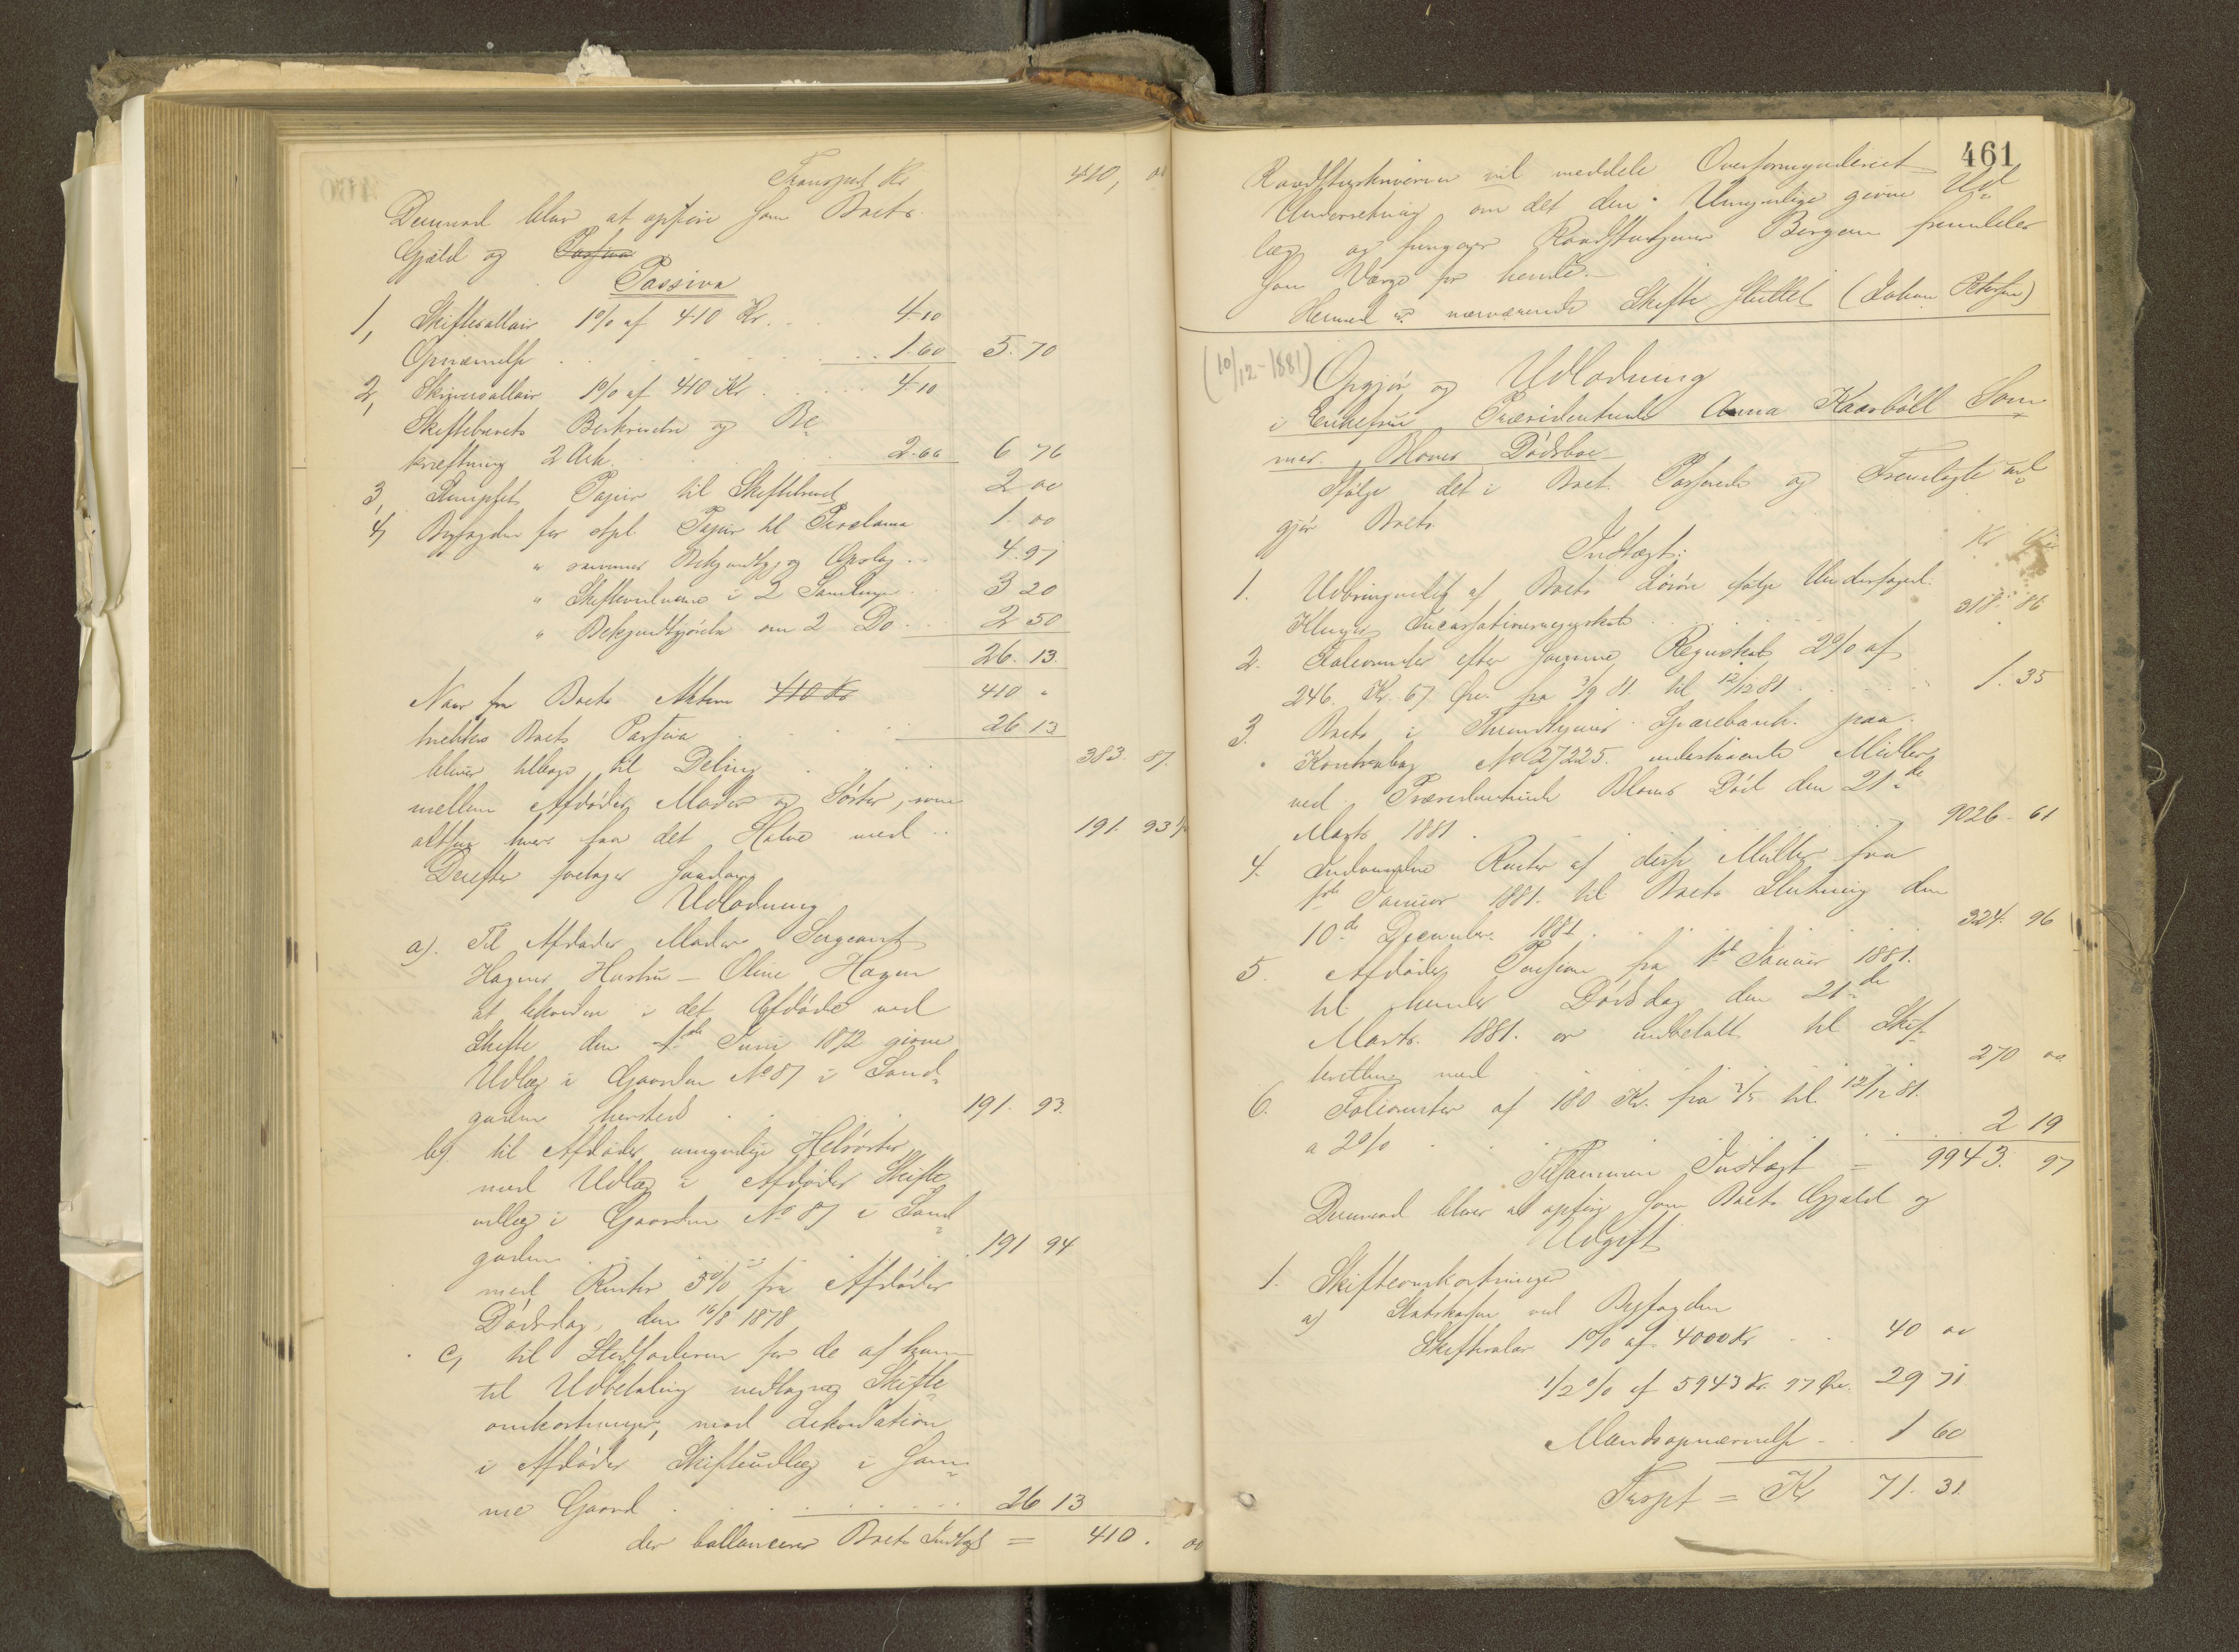 Transport Kr 410, 00
Derimod bliver at opføre som Boets
Gjæld og Passiva
Passiva
1, Skiftesallair 1% af 410 Kr. . . 4.10
Opnævnelse . . . 1.60 5.70
2, Skriversallair 1% af 410 Kr . . . 4.10
Skiftebrevets Beskrivelse og Be-
kræftning 2 Ark . . . 2.66 6 76
3, Stemplet Papir til Skiftebrevet 2 00
4, Byfogden for stpl. Papir til Proclama 1.00
" sammes Bekjendtgj. og Opslag . . 4.97
" i 2 Samlinger . . 3 20
" Bekjendtgjørelse om 2 Do . . . 2 50
26.13.
Naar fra Boets Aktiva 410 Kr 410 "
trækkes Boets Passiva . . . 26.13
bliver tilbage til Deling . . . 383. 87.
mellem Afdødes Moder og Søster, som
altsaa hver faar det Halve med . . 191. 93½
Derefter foretages saadan
Udlodning
a). Til Afdødes Moder Sergeant
Hagens Hustru – Oline Hagen
at i det Afdøde ved
Skifte den 1ste Juni 1872 givne
Udlæg i Gaarden No 87 i Sand-
gaden hersteds . . . 191. 93.
b). til Afdødes umyndige Helsøster
med Udlæg i Afdødes Skifte-
udlæg i Gaarden No 87 i Sand-
gaden . . . 191 94
med Renter 5% fra Afdødes
Dødsdag, den 16/8 1878
c, til Stedfaderen for de af ham
til Udbetaling Skifte-
omkostninger, med
i Afdødes Skifteudlæg i sam-
me Gaard . . . 26 13
der ballancerer Boets Indtægt = 410. 00
461
Raadstuskriveren vil meddele Overformynderiet
Underretning om det den Umyndige givne Ud-
læg og fungerer Bergan fremdeles
som Værge for hende.
Hermed er nærværende Skifte sluttet (Johan Petersen)
(10/12-1881) Opgjør og Udlodning
i Enkefrue Præsidentinde Anna Kaasbøll Som-
mer. Bloms Dødsboe
Ifølge det i Boet Passerede og Fremlagte ud-
gjør Boets
Indtægt: Kr Øre
1. af Boets Løsøre ifølge Underfoged
Klüwers . . . 318. 86
2. Foliorenter efter samme Regnskab 2% af
246. Kr. 67 Øre fra 3/9 81 til 12/12 81 . . . 1.35
3. Boets i Throndhjems Sparebank paa
Kontrabog No 27225. indestaaende Midler
ved Præsidentinde Bloms Død den 21de
Marts 1881 . . . 9026. 61
4. Indvundne Renter af disse Midler fra
1ste Januar 1881. til Boets Slutning den
10de December 1881 . . . 324. 96
5. Afdødes Pension fra 1ste Januar 1881.
til hendes Dødsdag den 21de
Marts 1881. er indbetalt til Skif-
teretten med . . . 270 00
6. Foliorenter af 180 Kr. fra 3/5 til 12/12 81.
a 2% . . . 2 19
Tilsammen Indtægt = 9943. 97
Derimod bliver at opføre som Boets Gjæld og
Udgift
1. Skifteomkostninger
a) Statskassen ved Byfogden
Skiftesalar 1% af 4000 Kr . . 40 00
1/2% af 5943 Kr. 97 Øre. 29 71
Mændsopnævnelse . . 1 60
Trspt = Kr 71. 31.